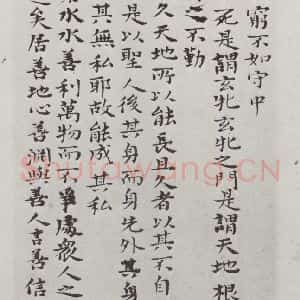 窮不如守中
死是謂玄牝玄牝之門是謂天地根
之不勤
久天地所以能長且久者以其不自
是以聖人後其身而身先外其身
其無私耶故能成其私
水水善利萬物而不爭處衆人之
矣居善地心善淵與善人言善信
Shufawang.CN